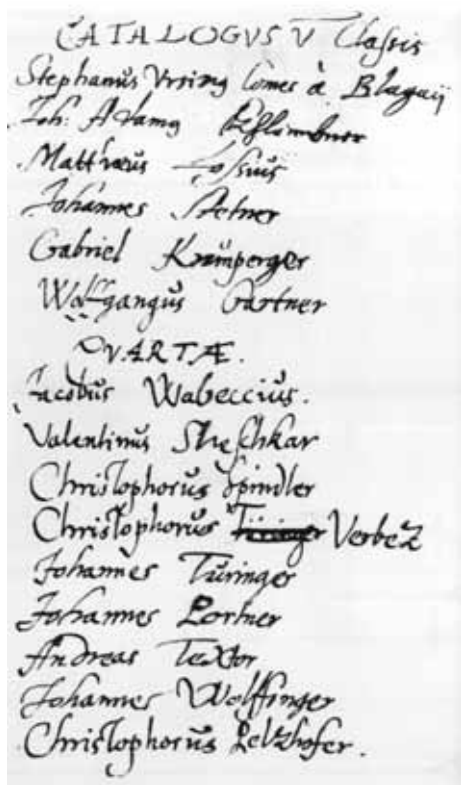 CATALOGVS V Classis
Stephanus Vrsinus Comes à Blagaÿ
Joh: Adamus
Matthæus Lossius
Johannes Stetner
Gabriel Krumperger
Wolfgangus Gartner
QVARTÆ.
Jacobus Wabeccius.
Valentinus
Christophorus Spindler
Christophorus Türinger Verbez
Johannes Türinger
Johannes Portner
Andreas Textor
Johannes Wolffinger
Christophorus Pelzhofer.